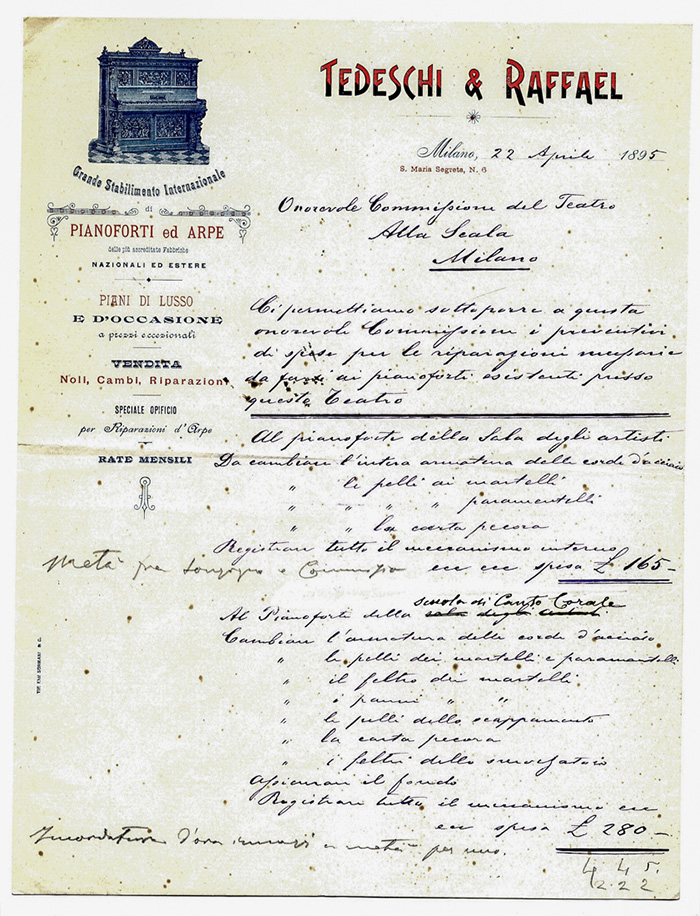 TEDESCHI & RAFFAEL
Milano, 22 Aprile 1895
S. Maria Segreta, N. 6
Grande Stabilimento Internazionale
di
PIANOFORTI ed ARPE
delle più accreditate Fabbriche
NAZIONALI ED ESTERE
PIANI DI LUSSO
E D'OCCASIONE
a prezzi eccezionali
VENDITA
Noli, Cambi, Riparazioni
SPECIALE OPIFICIO
per Riparazioni d'Arpe
RATE MENSILI
Onorevole Commissione del Teatro
Alla Scala
Milano
Ci permettiamo sottoporre a questa
onorevole Commissione i preventivi
di spese per le riparazioni necessarie
da farsi ai pianoforti esistenti presso
questo Teatro
Al pianoforte della Sala degli artisti
Da cambiare l'intera armatura delle corde d'acciaio
" li pelli ai martelli
" " " " paramartelli
" " la carta pecora
Registrare tutto il meccanismo interno
ecc ecc spesa £ 165-
Metà fra Sonzogno e Commissio
Al Pianoforte della scuola di Canto Corale
sala degli artisti
Cambiare l'armatura delle corde d'acciaio
" le pelli dei martelli e paramartelli
" il feltro dei martelli
" i panni " "
" le pelli dello scappamento
" la carta pecora
" i feltri dello smorzatoio
Appianare il fondo
Registrare tutto il meccanismo ecc
ecc spesa £ 280-
Incordatura d'ora innanzi a metà per uno.
445.
222